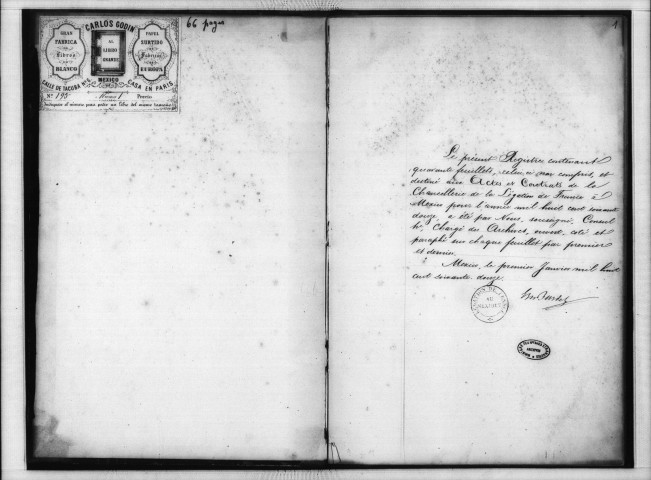 66 pages
1
CARLOS GODIN
GRAN
FABRICA
DE
Libros
EN
BLANCO
AL
LIBRO
GRANDE
MEXICO
PAPEL
SURTIDO
Fabricas
DE
EUROPA
CALLE DE TACUBA
CASA EN PARIS
N° 195 Precio
Le présent Registre contenant
quarante feuillets, celui-ci non compris, et
destiné aux Actes et Contrats de la
Chancellerie de la Légation de France à
Mexico pour l'année mil huit cent soixante
douze, a été par Nous, soussigné, Consul
Chargé des Archives, ouvert, coté et
paraphé sur chaque feuillet par premier
et dernier.
Mexico, le premier Janvier mil huit
cent soixante douze.
LEGATION DE FRANCE
AU
MEXIQUE